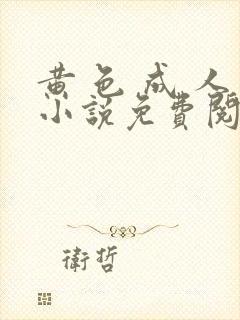 黄色成人
小說免費閱
衛哲